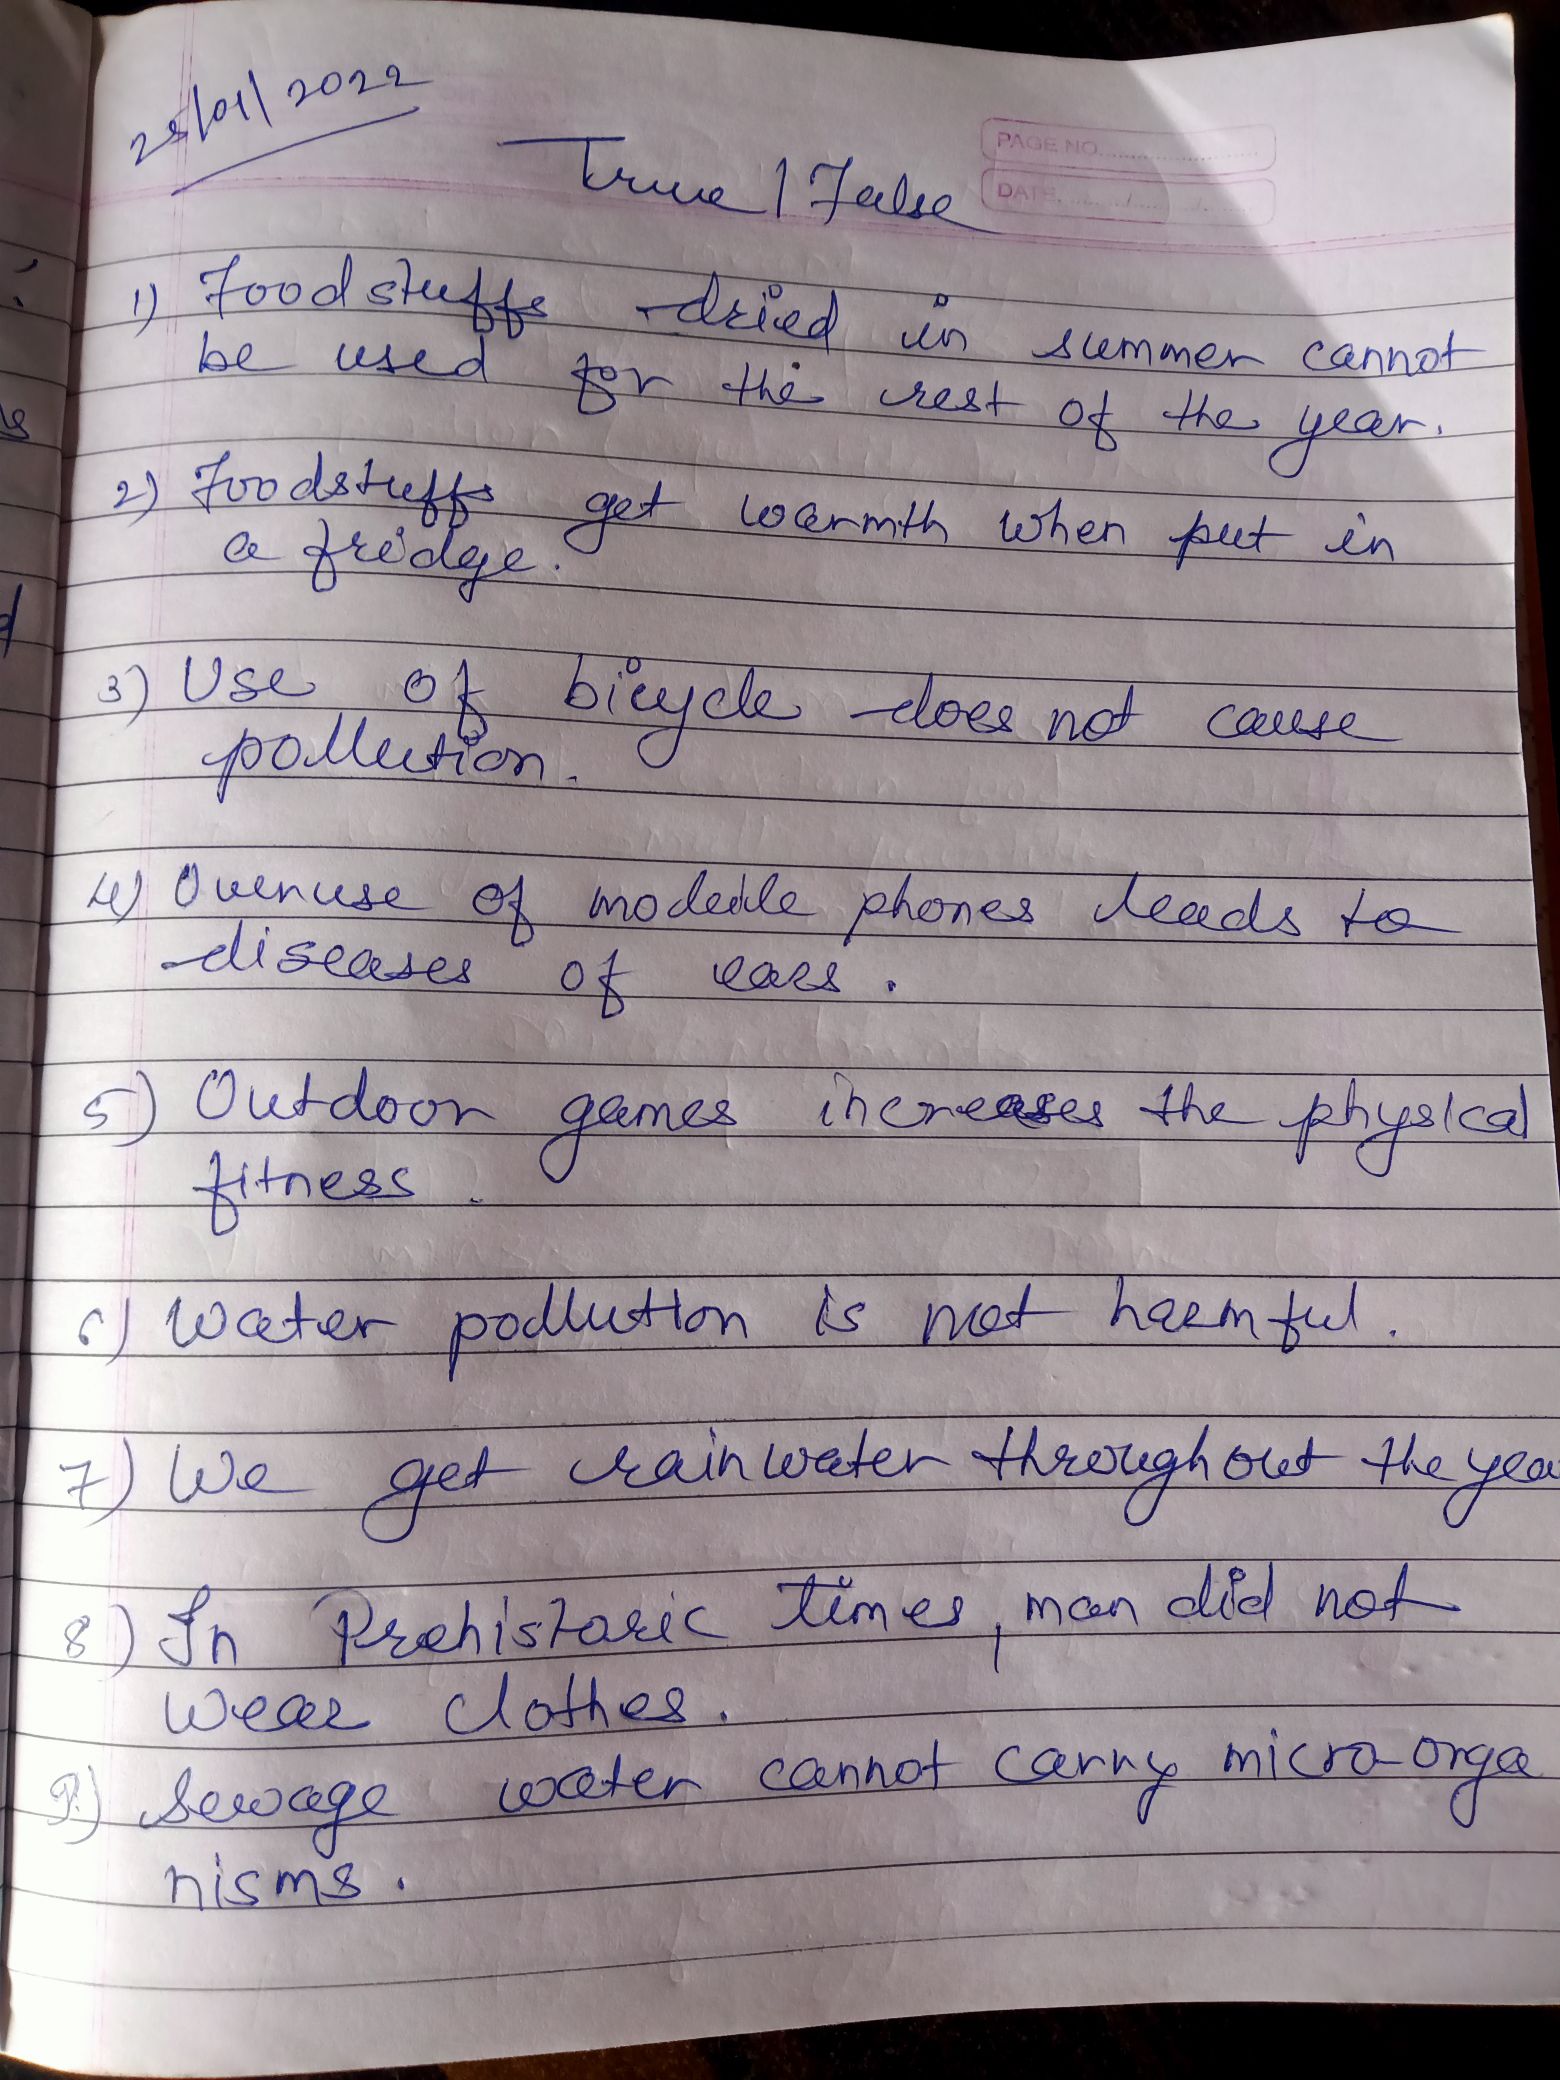 25/01/2022
PAGE NO.
DATE
True / False
1) Foodstuffs dried in summer cannot
be used for the rest of the year.
2) Foodstuffs get warmth when put in
a fridge.
3) Use of bicycle does not cause
pollution.
4) Overuse of mobile phones leads to
diseases of ears.
5) Outdoor games increases the physical
fitness.
6) Water pollution is not harmful.
7) We get rainwater throughout the yea
8) In Prehistoric times, man did not
wear clothes.
9) Sewage water cannot carry micro-orga
nisms.